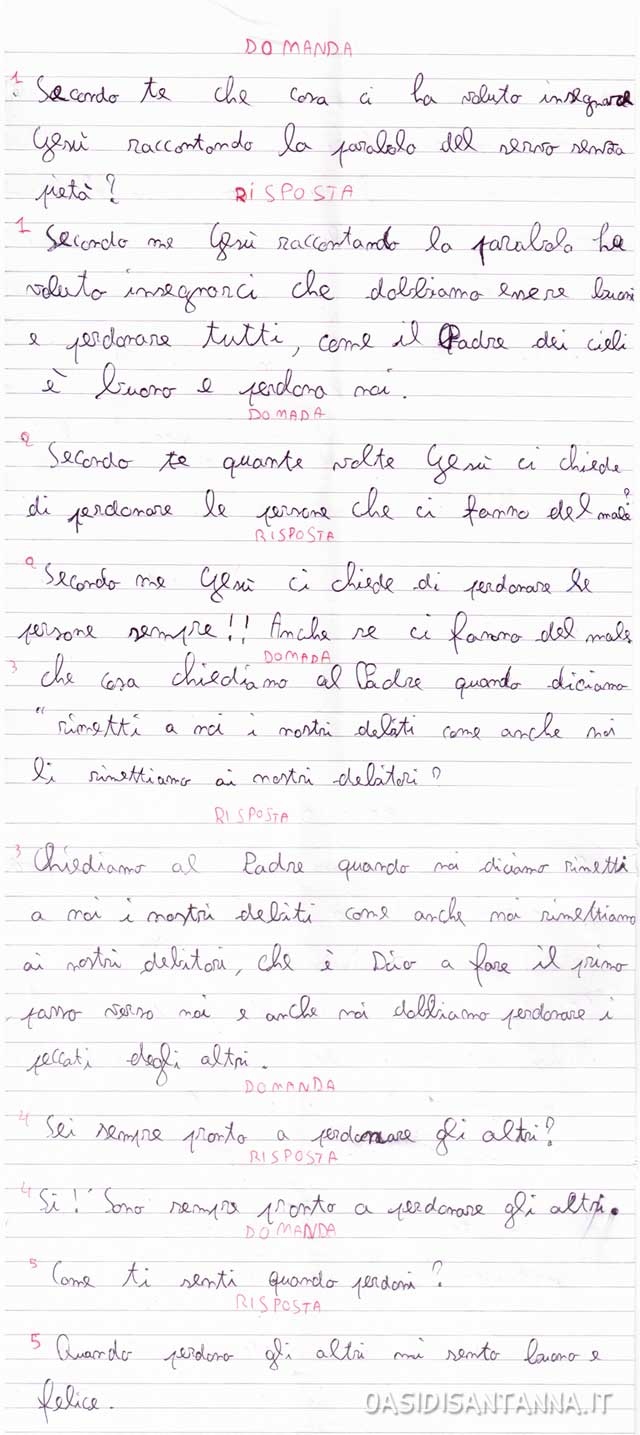 DOMANDA
1 Secondo te che cosa ci ha voluto insegnare
Gesù raccontando la parabola del servo senza
pietà?
RISPOSTA
1 Secondo me Gesù raccontando la parabola ha
voluto insegnarci che dobbiamo essere buoni
e perdonare tutti, come il Padre dei cieli
è buono e perdona noi.
DOMADA
2 Secondo te quante volte Gesù ci chiede
di perdonare le persone che ci fanno del male?
RISPOSTA
2 Secondo me Gesù ci chiede di perdonare le
persone sempre!! Anche se ci fanno del male
DOMADA
3 Che cosa chiediamo al Padre quando diciamo
"rimetti a noi i nostri debiti come anche noi
li rimettiamo ai nostri debitori?
RISPOSTA
3 Chiediamo al Padre quando noi diciamo rimetti
a noi i nostri debiti come anche noi rimettiamo
ai nostri debitori, che è Dio a fare il primo
passo verso noi e anche noi dobbiamo perdonare i
peccati degli altri.
DOMANDA
4 Sei sempre pronto a perdonare gli altri?
RISPOSTA
4 Si! Sono sempre pronto a perdonare gli altri.
DOMANDA
5 Come ti senti quando perdoni?
RISPOSTA
5 Quando perdono gli altri mi sento buono e
felice.
OASIDISANTANNA.IT